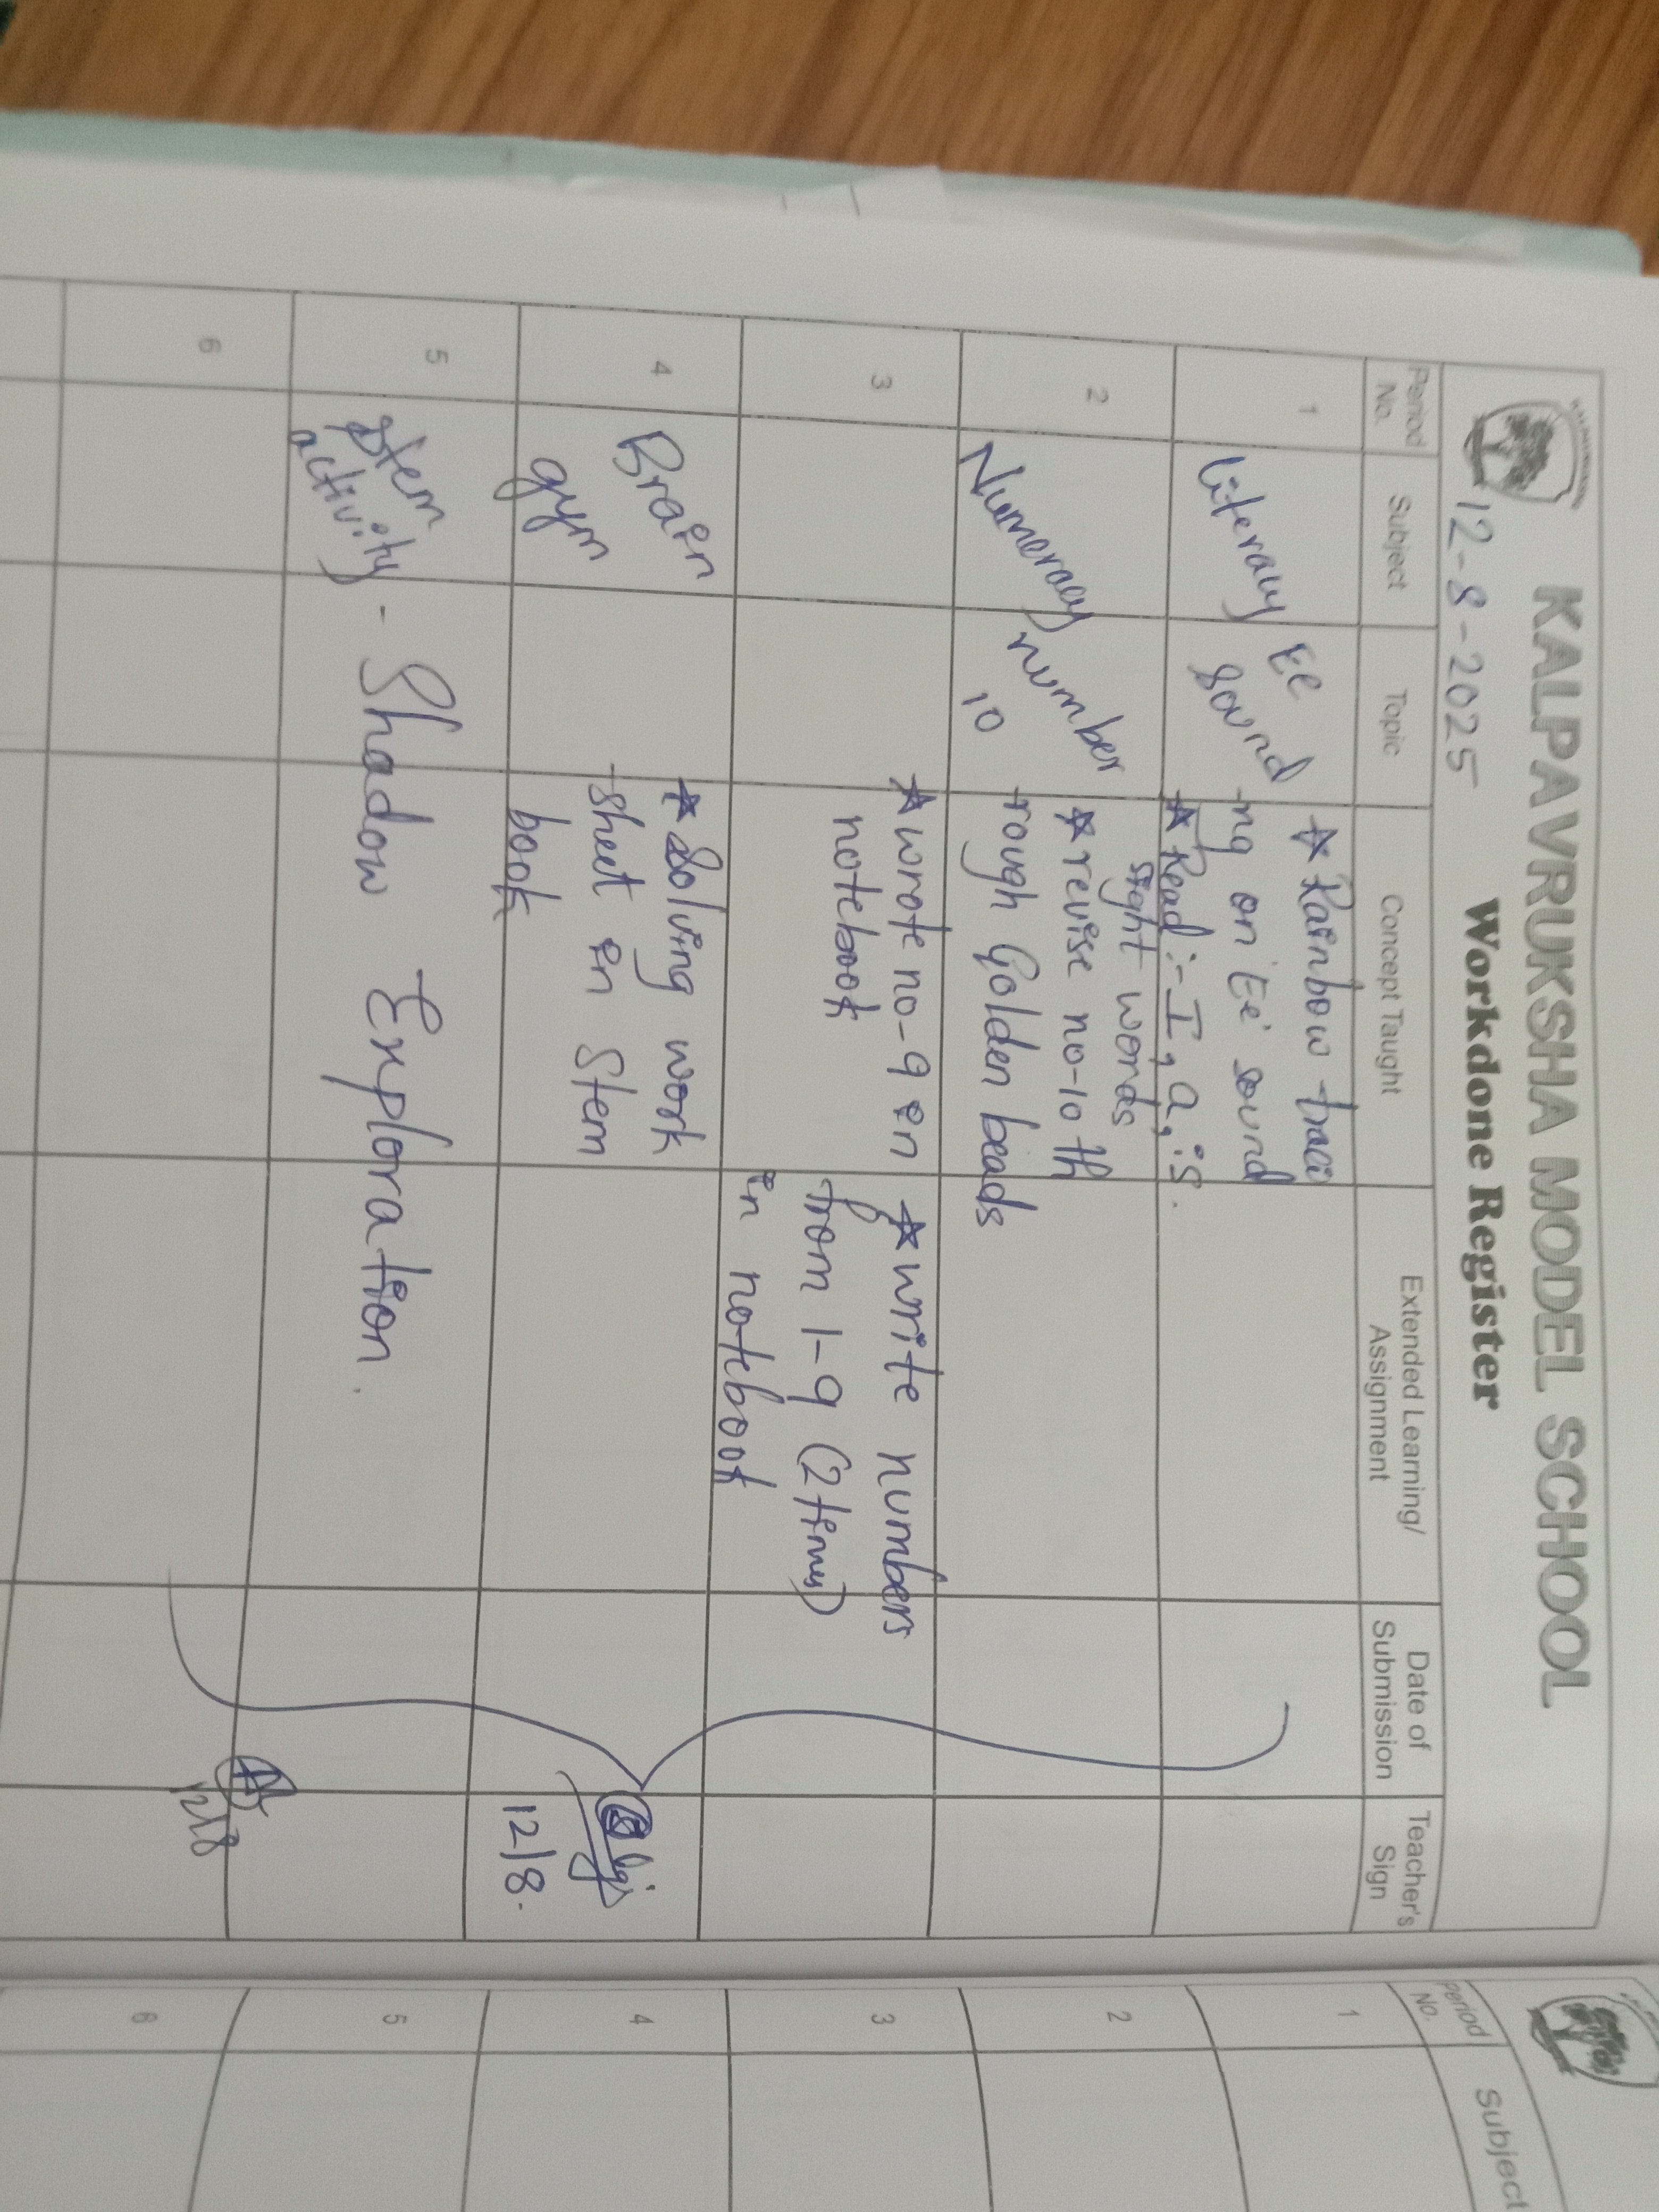 KALPAVRUKSHA MODEL SCHOOL
Workdone Register
12-8-2025
Period No.
Subject
Topic
Concept Taught
Extended Learning/ Assignment
Date of Submission
Teacher's Sign
1
Literacy
Ee
Sound
★ Rainbow traci
-ng on 'Ee' sound
★ Read :- I, a, is.
sight words
2
Numeracy
number
10
★ revise no-10 th
-rough Golden beads
3
★ wrote no-9 in
notebook
★ write numbers
from 1-9 (2 times)
in notebook
4
Brain
gym
★ Solving work
-sheet in Stem
book
12/8.
5
Stem
activity - Shadow Exploration.
6
12/8
Period No.
Subject
1
2
3
4
5
6